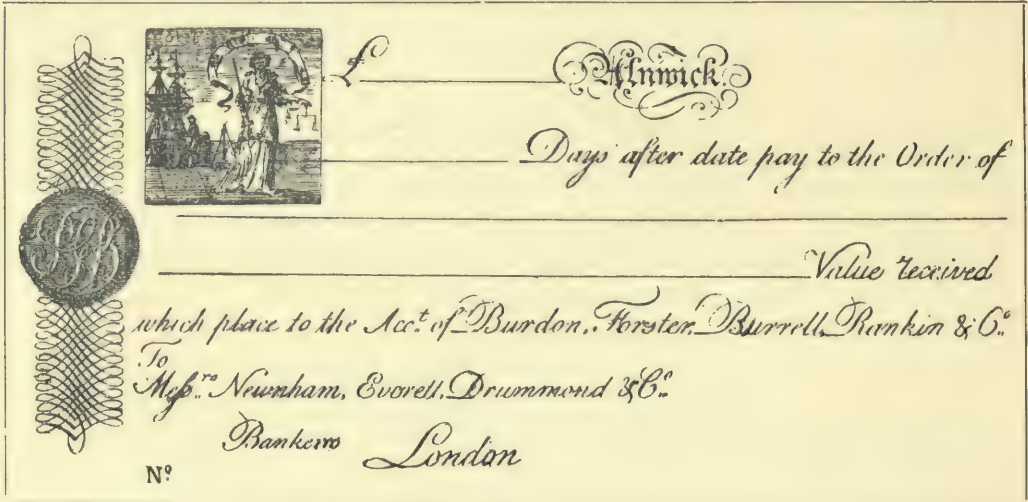 £ Alnwick.
Days after date pay to the Order of
Value received
which place to the Acc.t of Burdon, Forster, Burrell, Rankin & Co.
To
Messrs. Newnham, Everett, Drummond & Co.
Bankers London
No.